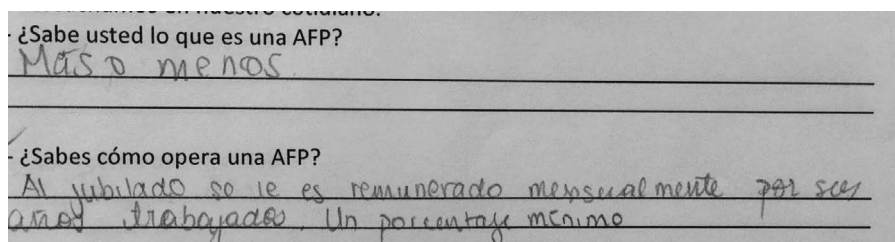 - ¿Sabe usted lo que es una AFP?
Más o menos.
- ¿Sabes cómo opera una AFP?
Al jubilado se le es remunerado mensualmente por sus
años trabajados. Un porcentaje mínimo